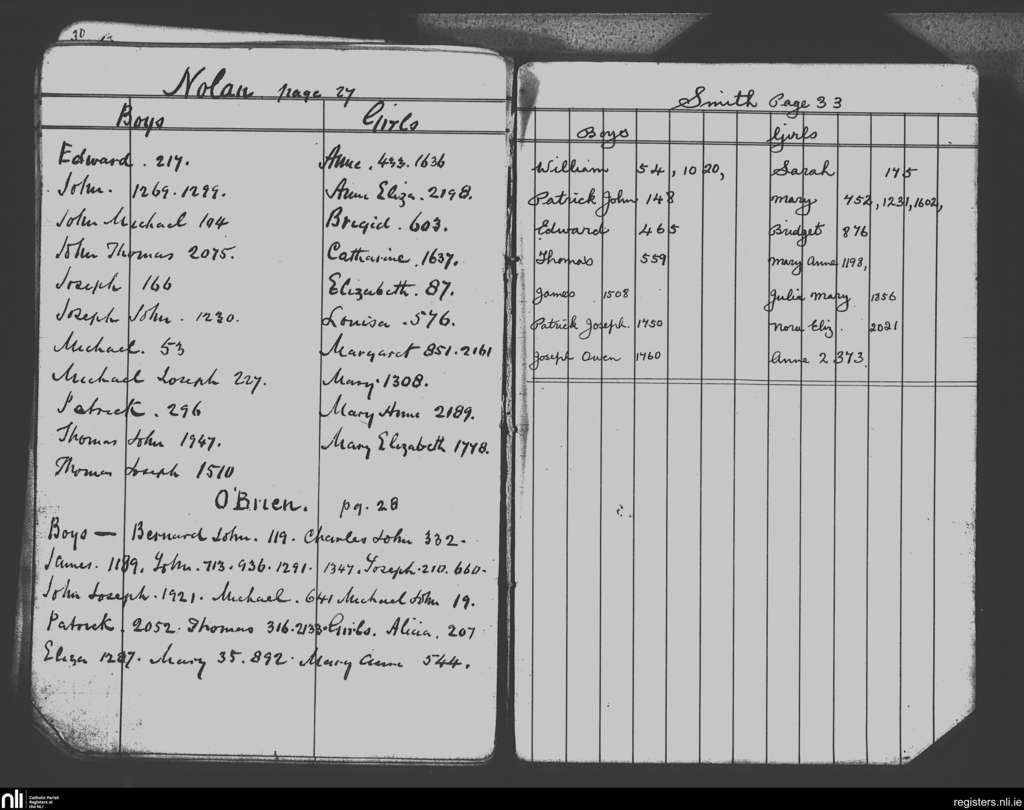 30
Nolan page 27
Boys Girls
Edward . 217. Anne . 433. 1636
John. 1269. 1299. Anne Eliza. 2198.
John Michael 104 Bregid . 603.
John Thomas 2075. Catharine. 1637.
Joseph 166 Elizabeth. 87.
Joseph John . 1230. Louisa . 576.
Michael. 53 Margaret 851. 2161
Michael Joseph 227. Mary. 1308.
Patrick . 296 Mary Anne 2189.
Thomas John 1947. Mary Elizabeth 1778.
Thomas Joseph 1510
O'Brien. pg. 28
Boys — Bernard John. 119. Charles John 332.
James. 1189. John. 713. 936. 1291. 1347. Joseph. 210. 660.
John Joseph. 1921. Michael. 641 Michael John 19.
Patrick. 2052. Thomas 316. 2133. Girls. Alicia. 207
Eliza 1287. Mary 35. 892. Mary Anne 544.
Smith Page 33
Boys Girls
William 54, 1020, Sarah 175
Patrick John 148 Mary 752, 1231, 1602,
Edward 465 Bridget 876
Thomas 559 Mary Anne 1198,
James 1508 Julia Mary 1356
Patrick Joseph. 1750 Nora Eliz. 2021
Joseph Owen 1760 Anne 2373
nli Catholic Parish Registers at the NLI
registers.nli.ie